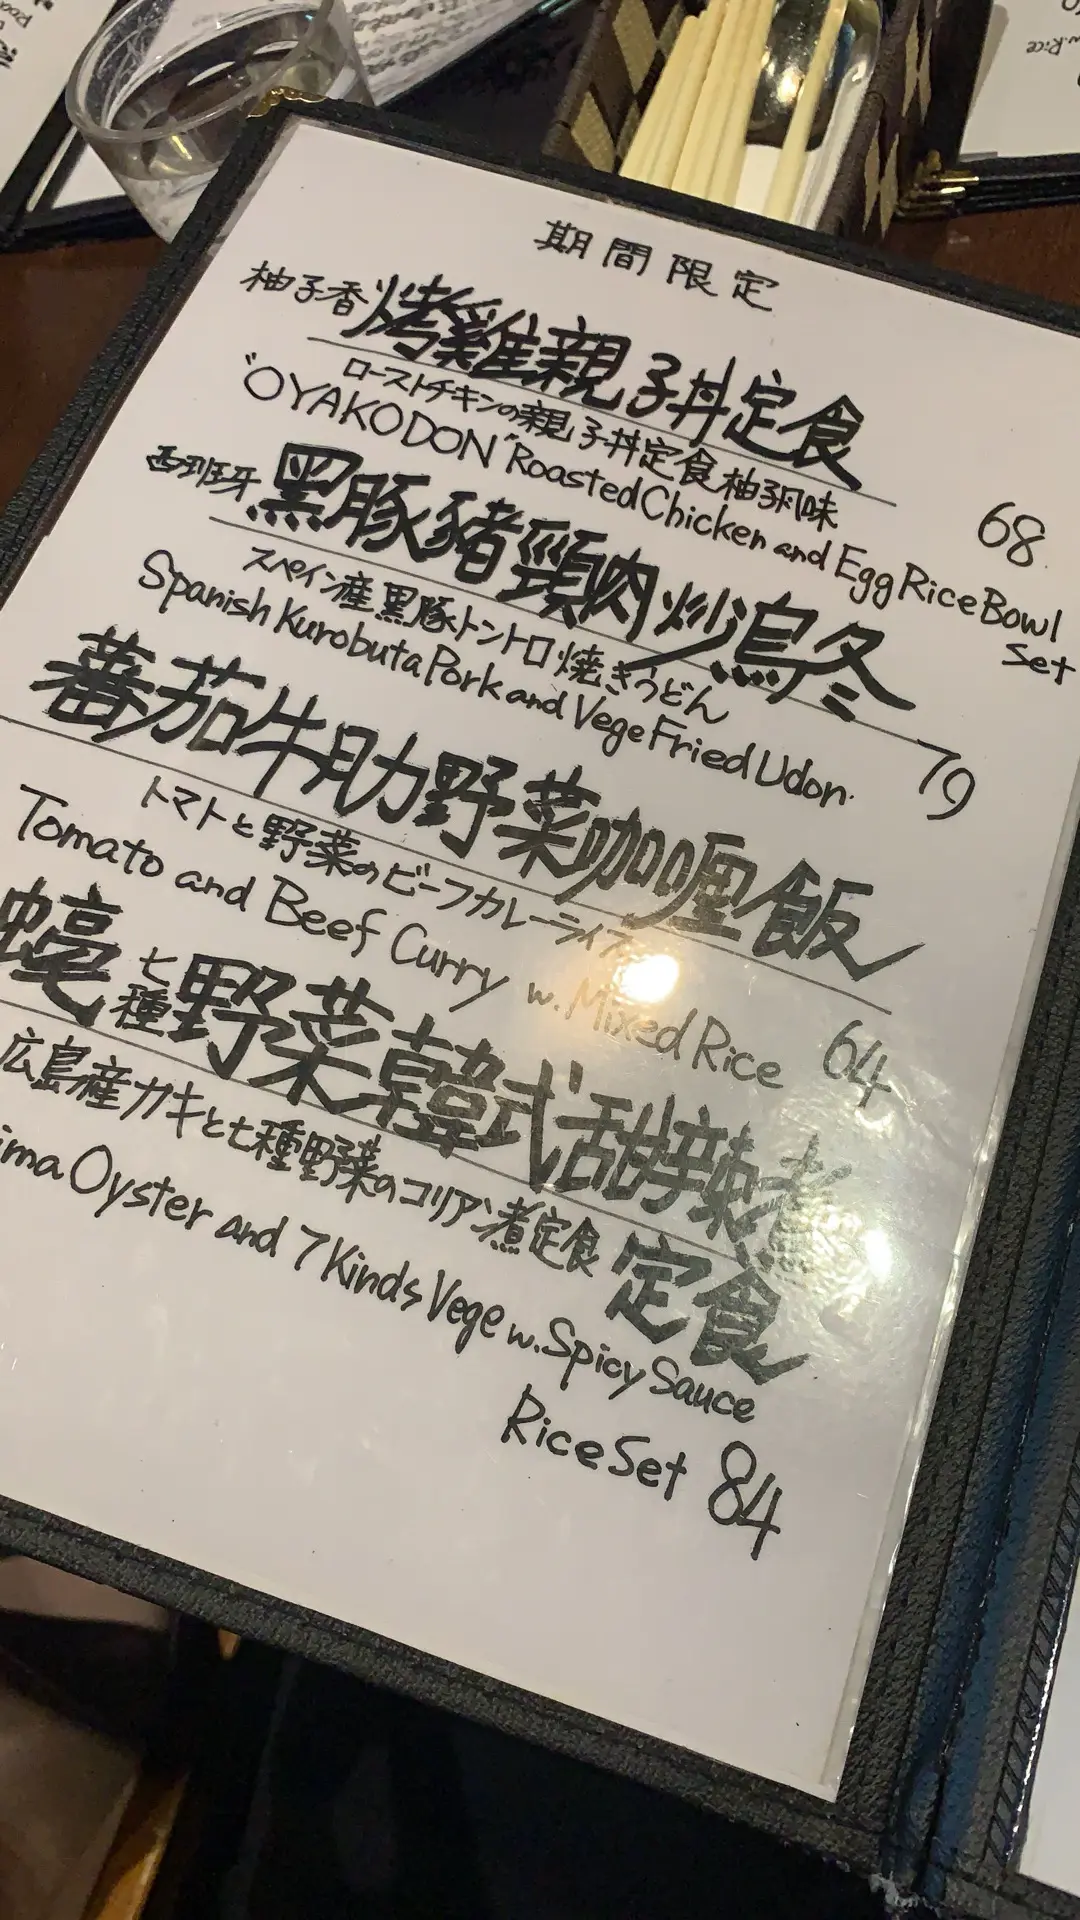 期間限定
柚子香烤雞親子丼定食
ローストチキンの親子丼定食柚子風味
"OYAKODON" Roasted Chicken and Egg Rice Bowl
Set
68
西班牙黑豚豬頸肉炒烏冬
スペイン産黒豚トントロ焼きうどん
Spanish Kurobuta Pork and Vege Fried Udon.
79
蕃茄牛肋野菜咖喱飯
トマトと野菜のビーフカレーライス
Tomato and Beef Curry w. Mixed Rice 64
蠔七種野菜韓式甜辣煮
定食
広島産カキと七種野菜のコリアン煮定食
ima Oyster and 7 Kinds Vege w. Spicy Sauce
Rice Set 84
w. Rice